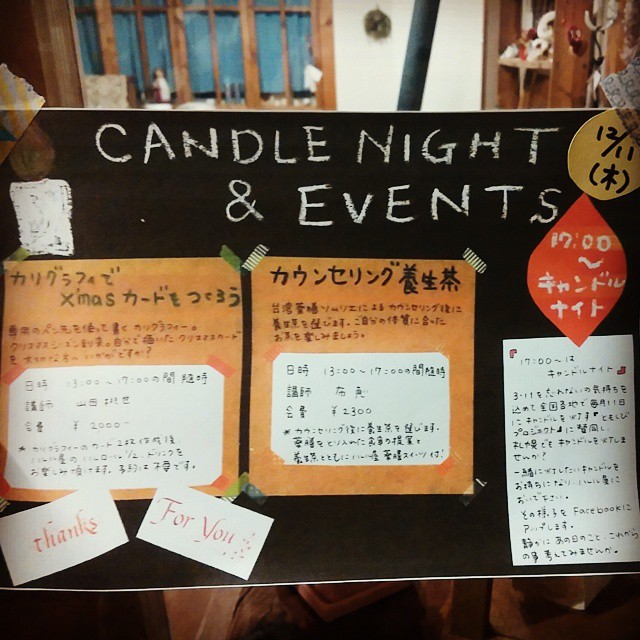 CANDLE NIGHT
& EVENTS
12/11
(木)
17:00
〜
キャンドル
ナイト
カリグラフィで
xmas カードをつくろう
専用のペン先を使って書くカリグラフィー。
クリスマスシーズン到来。自分で描いたクリスマスカード
を
いかがですか?
日時 13:00〜17:00の間随時
講師 山田
会費 ¥2000-
*カリグラフィーのカード2枚作成後
ドリンクを
お楽しみ頂けます。予約は不要です。
カウンセリング養生茶
台湾薬膳ソムリエによるカウンセリング後に
養生茶を選びます。ご自分の体質に合った
お茶を楽しみましょう。
日時 13:00〜17:00の間随時
講師
会費 ¥2300
*カウンセリング後に養生茶を選びます。
薬膳をとり入れたお食事の提案と
養生茶とともに
薬膳スイーツ付!
17:00〜は
キャンドルナイト
3.11を忘れない気持ちを
込めて全国各地で毎月11日
にキャンドルを灯す『ともしび
プロジェクト』に賛同し、
札幌でもキャンドルを灯しま
せんか?
一緒に灯したいキャンドルを
お持ちになり
おいで下さい。
その様子をFacebookに
アップします。
静かにあの日のこと、これから
の事考えてみませんか。
thanks
For You